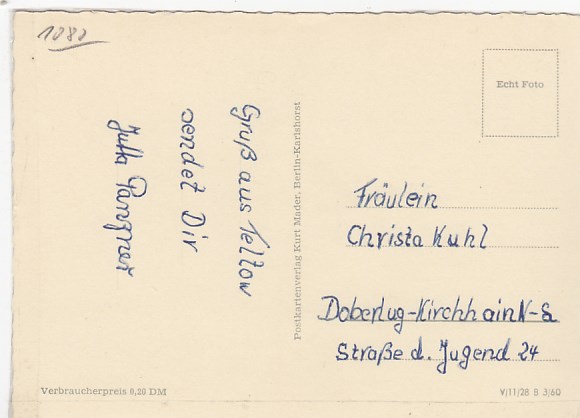 1080
Gruß aus Teltow
sendet Dir
Jutta
Postkartenverlag Kurt Mader, Berlin-Karlshorst
Echt Foto
Fräulein
Christa Kuhl
Doberlug-Kirchhain N-L
Straße d. Jugend 24
Verbraucherpreis 0,20 DM
V/11/28 B 3/60